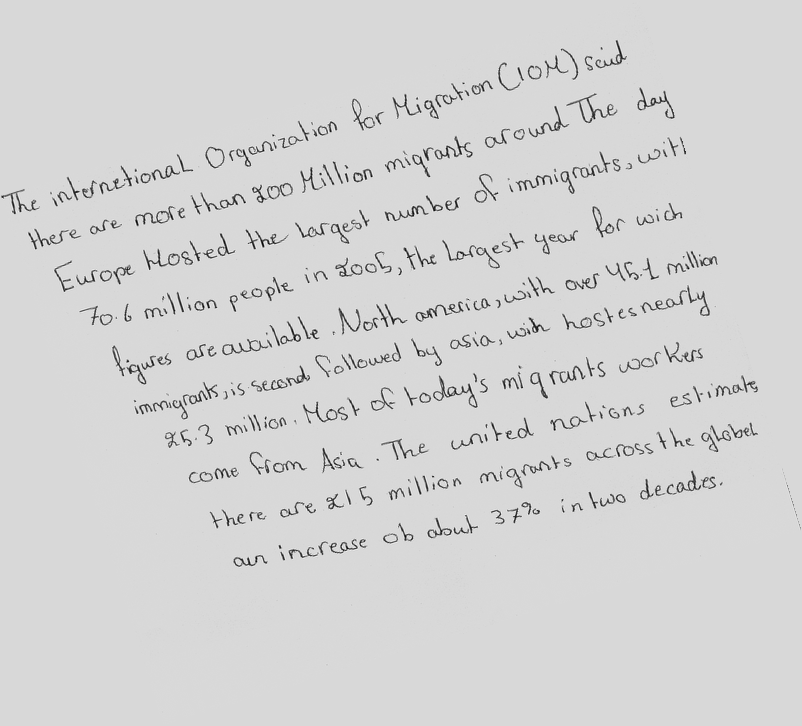 The internetional Organization for Migration (IOM) said
there are more than 200 Million migrants around The day
Europe Hosted the largest number of immigrants, with
70.6 million people in 2005, the largest year for wich
figures are available. North america, with over 45.1 million
immigrants, is second followed by asia, wich hostes nearly
25.3 million. Most of today's migrants workers
come from Asia. The united nations estimate
there are 215 million migrants across the globel
an increase ob about 37% in two decades.